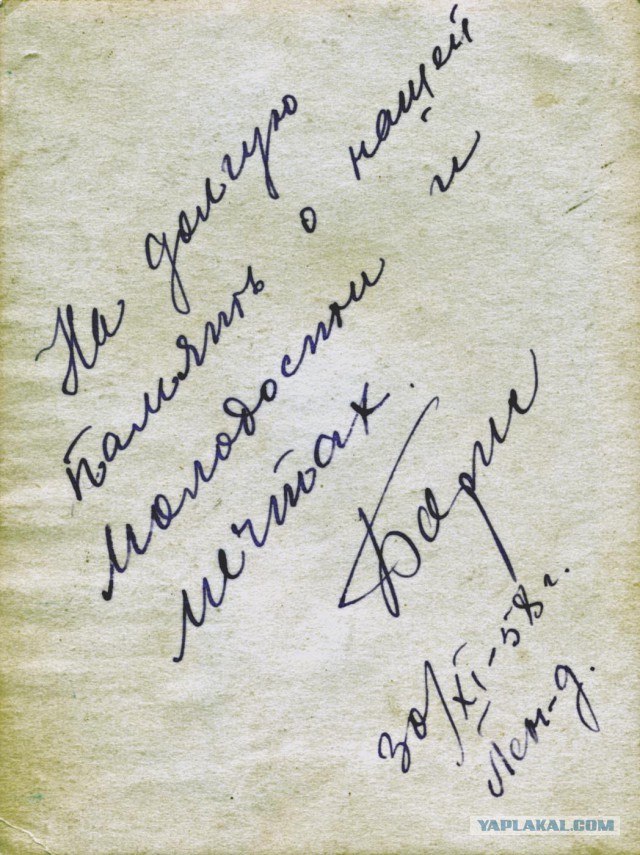 На долгую
память о нашей
молодости и
мечтах.
30/XI-58 г.
Лен-д.
YAPLAKAL.COM